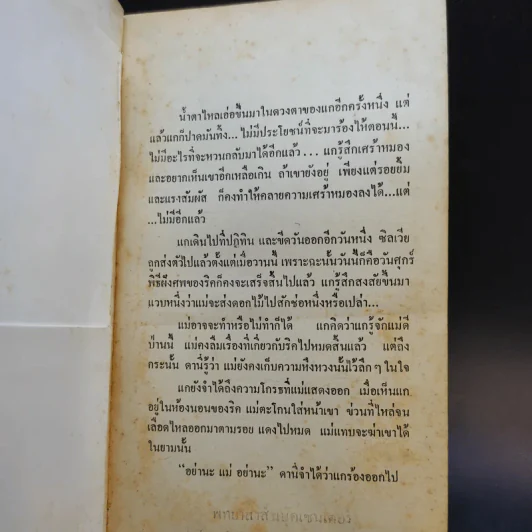 น้ำตาไหลเอ่อขึ้นมาในดวงตาของแกอีกครั้งหนึ่ง แต่
แล้วแกก็ปาดมันทิ้ง... ไม่มีประโยชน์ที่จะมาร้องไห้ตอนนี้...
ไม่มีอะไรที่จะหวนกลับมาได้อีกแล้ว... แกรู้สึกเศร้าหมอง
และอยากเห็นเขาอีกเหลือเกิน ถ้าเขายังอยู่ เพียงแต่รอยยิ้ม
และแรงสัมผัส ก็คงทำให้คลายความเศร้าหมองลงได้...แต่
...ไม่มีอีกแล้ว
แกเดินไปที่ปฏิทิน และขีดวันออกอีกวันหนึ่ง ซิลเวีย
ถูกส่งตัวไปแล้วตั้งแต่เมื่อวานนี้ เพราะฉะนั้นวันนี้ก็คือวันศุกร์
พิธีฝังศพของริคก็คงจะเสร็จสิ้นไปแล้ว แกรู้สึกสงสัยขึ้นมา
แวบหนึ่งว่าแม่จะส่งดอกไม้ไปสักช่อหนึ่งหรือเปล่า...
แม่อาจจะทำหรือไม่ทำก็ได้ แกคิดว่าแกรู้จักแม่ดี
ป่านนี้ แม่คงลืมเรื่องที่เกี่ยวกับริคไปหมดสิ้นแล้ว แต่ถึง
กระนั้น ดานี่รู้ว่า แม่ยังคงเก็บความหึงหวงนั้นไว้ลึกๆ ในใจ
แกยังจำได้ถึงความโกรธที่แม่แสดงออก เมื่อเห็นแก
อยู่ในห้องนอนของริค แม่ตะโกนใส่หน้าเขา ข่วนที่ไหล่จน
เลือดไหลออกมาตามรอย แดงไปหมด แม่แทบจะฆ่าเขาได้
ในยามนั้น
“อย่านะ แม่ อย่านะ” ดานี่จำได้ว่าแกร้องออกไป